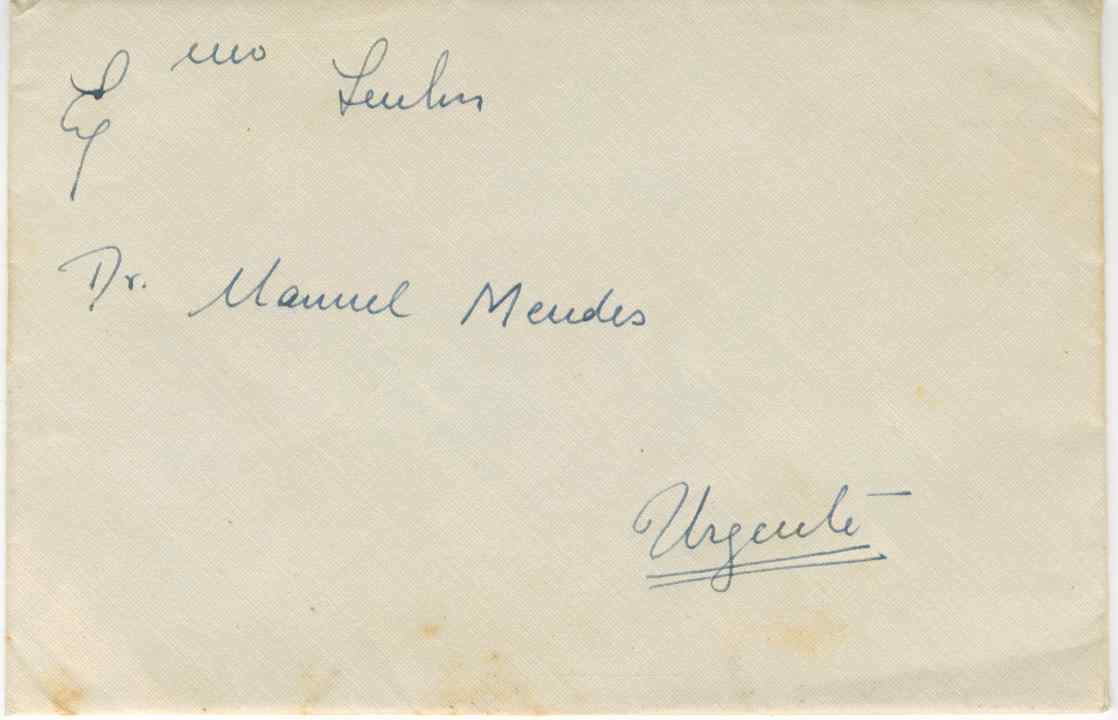 Exmo Senhor
Dr. Manuel Mendes
Urgente